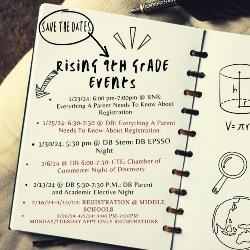 SAVE THE DATES
RISING 9TH GRADE
EVENTS
1/23/24: 6:00 pm-7:00pm @ RNR:
Everything A Parent Needs To Know About
Registration
1/25/24: 6:30-7:30 @ DB: Everything A Parent
Needs To Know About Registration
1/30/24: 5:30 pm @ DB Stem: DB EPSSO
Night
2/6/24 @ DB 6:00-7:30: CTE: Chamber of
Commerce: Night of Discovery
2/13/24 @ DB 5:30-7:30 P.M.: DB Parent
and Academic Elective Night
REGISTRATION @ MIDDLE
SCHOOLS
MONDAY/TUESDAY APPT ONLY REGISTRATIONS